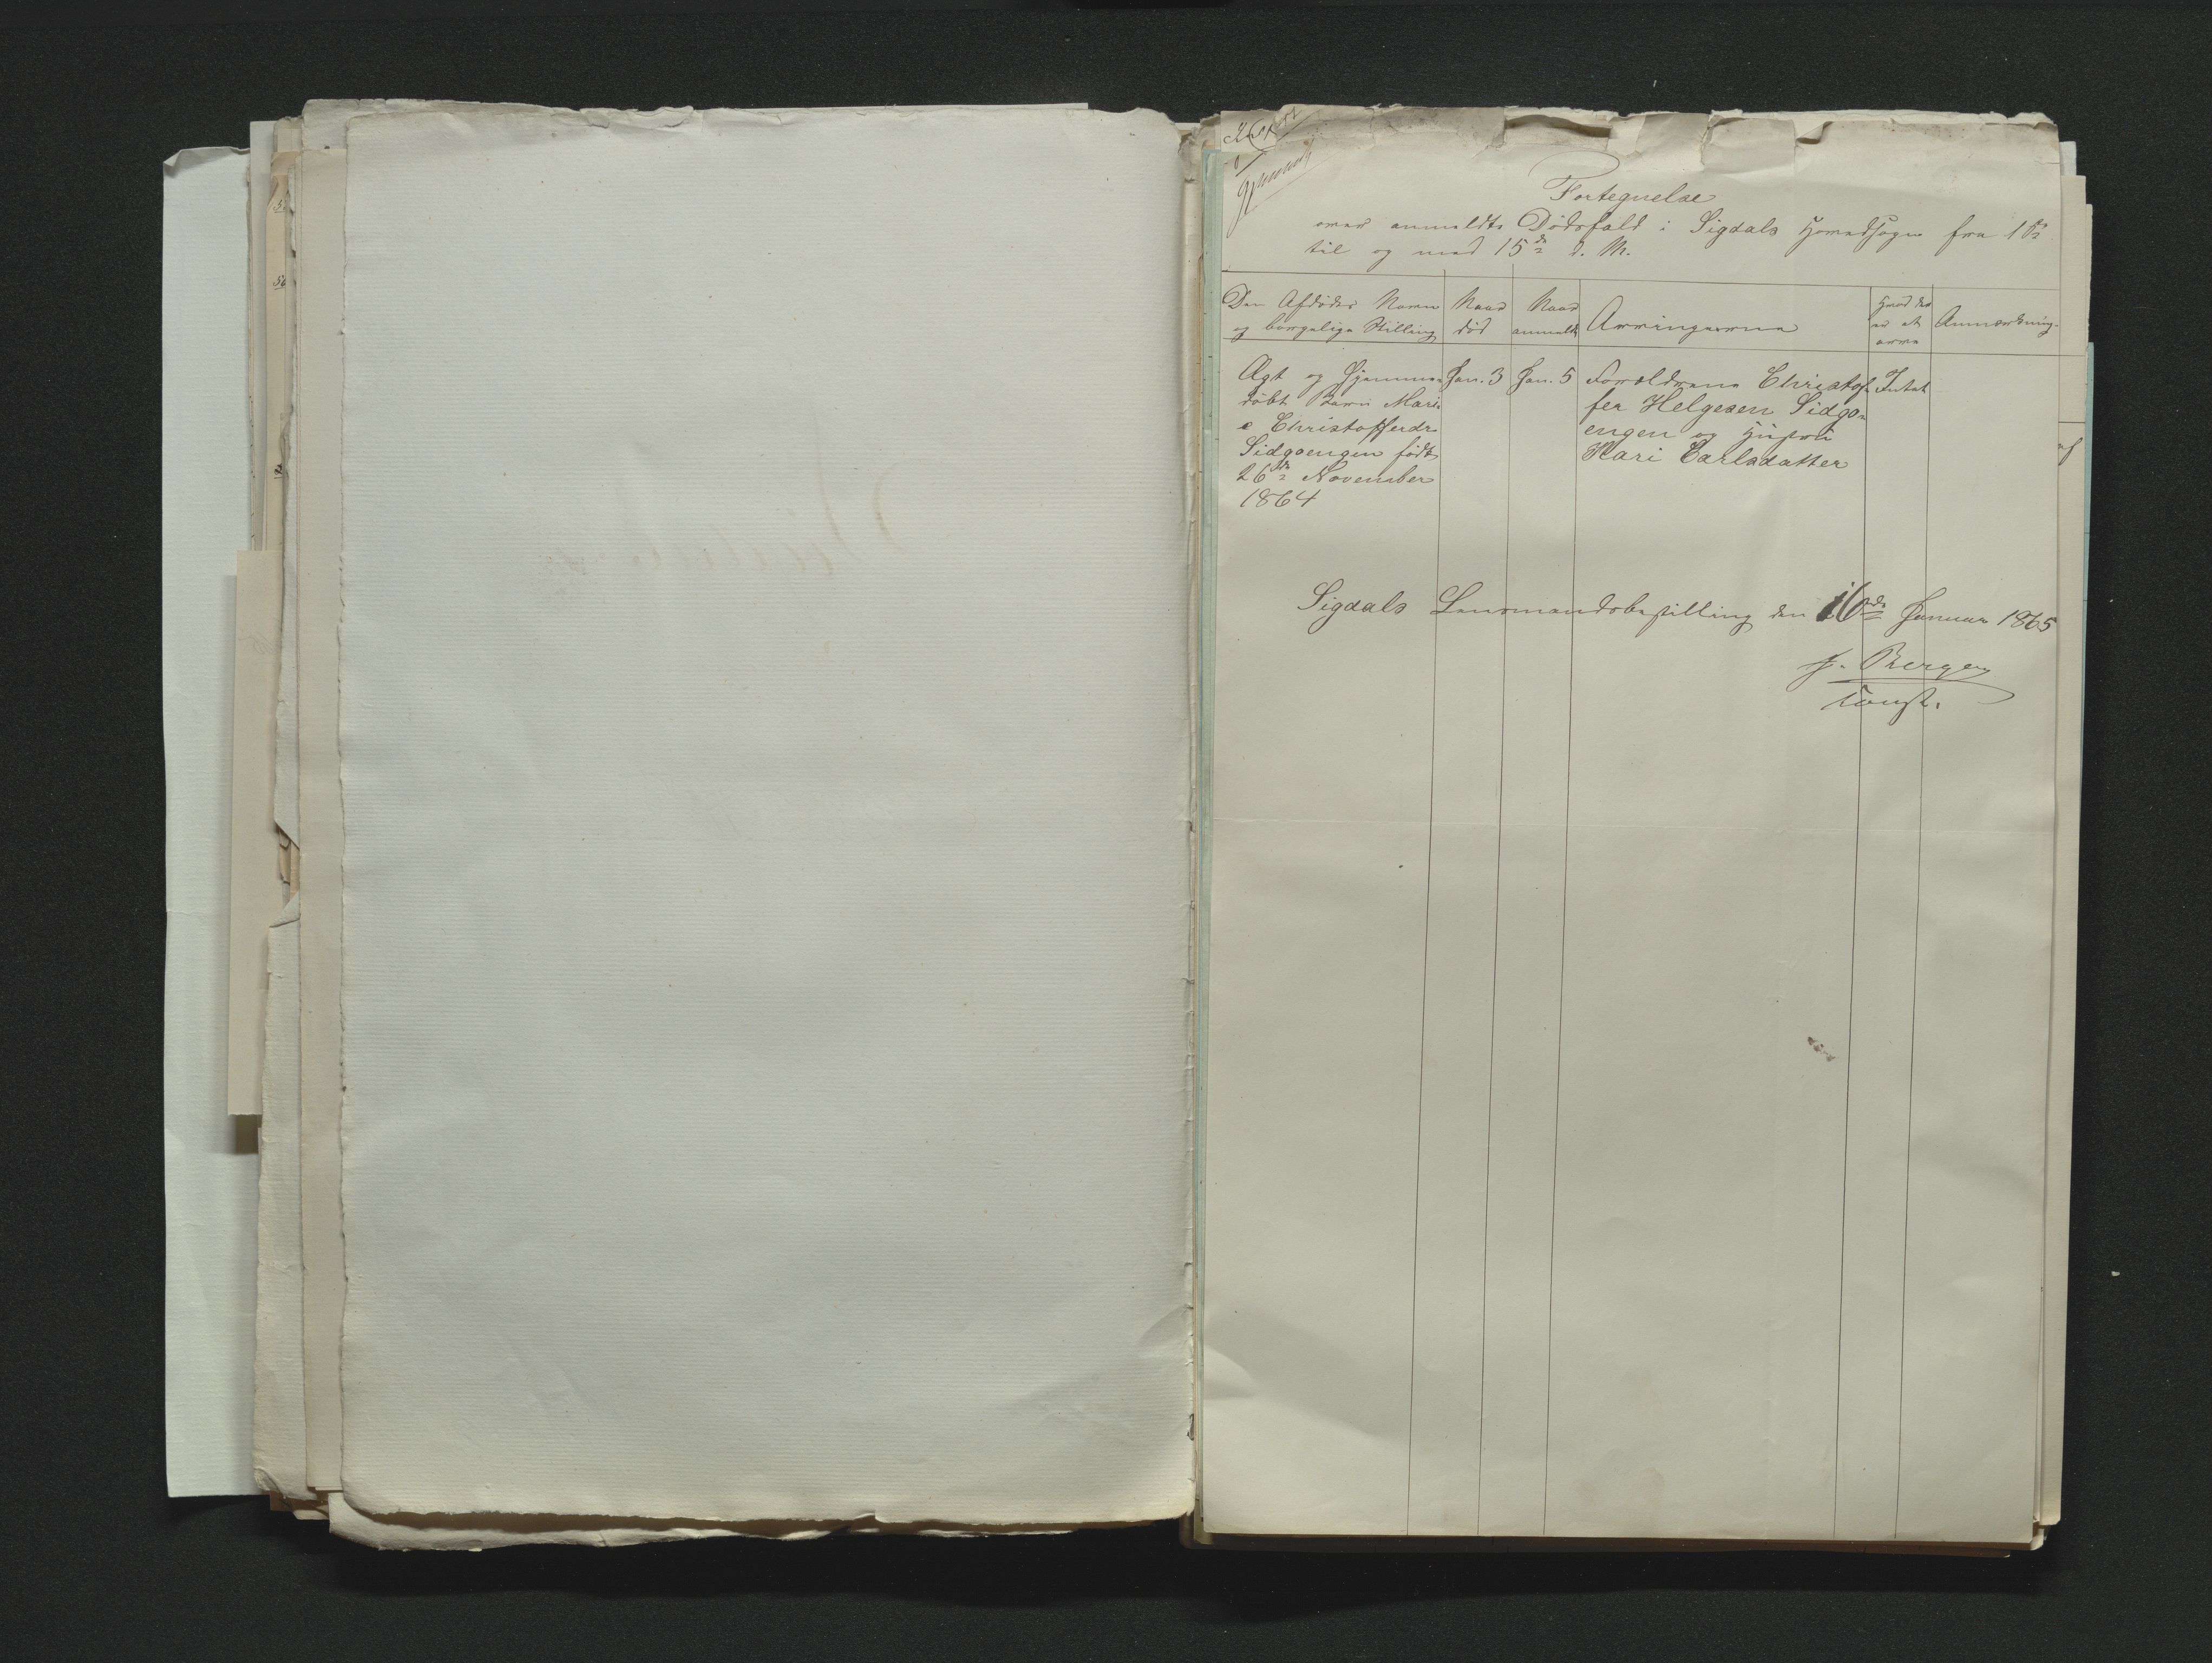 Fortegnelse
over anmeldte Dødsfald i Sigdals Hovedsogn fra 1ste
til og med 15de d. M.
Den Afdødes Navn
og borgelige Stilling
Naar
død
Naar
anmeldt
Arvingerne
Hvad der
er at
arve
Anmærkning.
Ægt og Hjemme-
døbt Barn Mari-
e Christofferdr.
Sidgoengen født
26de November
1864
Jan. 3
Jan. 5
Forældrene Christof-
fer Helgesen Sidgo-
engen og Hustru
Mari Carlsdatter
Intet
Sigdals Lensmandsbestilling den 16de Januar 1865
J. Bergen
Const.